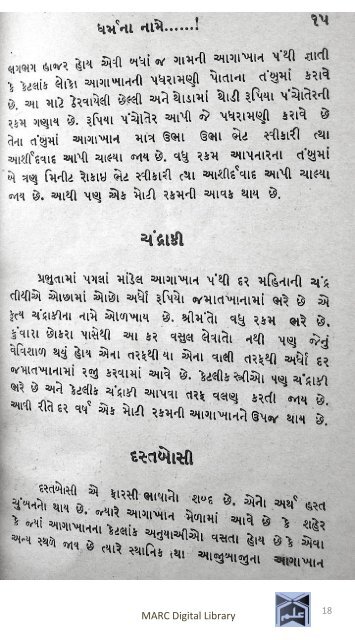 ધર્મના નામે......!
૧૫
લગભગ હાજર હોય એવી બધાં જ ગામની આગાખાન પંથી જ્ઞાતી
કે કેટલાંક લોકો આગાખાનની પધરામણી પોતાના તંબુમાં કરાવે
છે. આ માટે ઠેરવાયેલી છેલ્લી અને થોડામાં થોડી રૂપિયા પંચોતેરની
રકમ ગણાય છે. રૂપિયા પંચોતેર આપી જે પધરામણી કરાવે છે
તેના તંબુમાં આગાખાન માત્ર ઉભા ઉભા ભેટ સ્વીકારી ત્થા
આશીર્વાદ આપી ચાલ્યા જાય છે. વધુ રકમ આપનારના તંબુમાં
બે ત્રણુ મિનીટ રોકાઇ ભેટ સ્વીકારી ત્થા આશીર્વાદ આપી ચાલ્યા
જાય છે. આથી પણુ એક મોટી રકમની આવક થાય છે.
ચંદ્રાકી
પ્રભુતામાં પગલાં માંડેલ આગાખાન પંથી દર મહિનાની ચંદ્ર
તીથીએ ઓછામાં ઓછો અર્ધો રૂપિયો જમાતખાનામાં ભરે છે એ
કૃત્ય ચંદ્રાકીના નામે ઓળખાય છે. શ્રીમંતો વધુ રકમ ભરે છે.
કુંવારા છોકરા પાસેથી આ કર વસુલ લેવાતો નથી પણ જેનું
વેવિશાળ થયું હોય એના તરફથી યા એના વાલી તરફથી અર્ધો દર
જમાતખાનામાં રજી કરવામાં આવે છે. કેટલીક સ્ત્રીઓ પણુ ચંદ્રાકી
ભરે છે અને કેટલીક ચંદ્રાકી આપવા તરફ વલણુ કરતી જાય છે.
આવી રીતે દર વર્ષે એક મોટી રકમની આગાખાનને ઉપજ થાય છે.
દસ્તબોસી
દસ્તબોસી એ ફારસી ભાષાનો શબ્દ છે. એનો અર્થ હસ્ત
ચુંબનનો થાય છે. જ્યારે આગાખાન મેળામાં આવે છે કે શહેર
કે જ્યાં આગાખાનના કેટલાંક અનુયાયીઓ વસતા હોય છે કે એવા
અન્ય સ્થળે જાવ છે ત્યારે સ્થાનિક ત્થા આજુબાજુના આગાખાન
MARC Digital Library
18